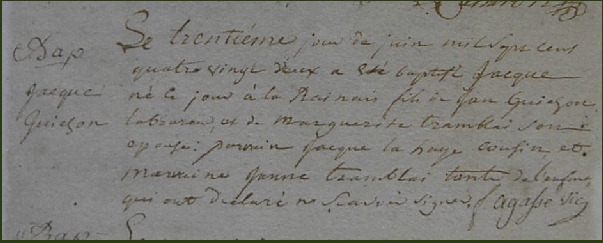 Bap
jacque
Guiezon
Le trentiéme jour de juin mil sept cens
quatre vingt deux a eté baptisé jacque
né le jour à la Rainais fils de jan Guiezon
laboureur, et de margueritte tramblai son
epouse: parrain jacque la haye cousin, et
marraine janne tramblai tante de l'enfant,
qui ont declaré ne scavoir signer. f. agasse vic
Bap